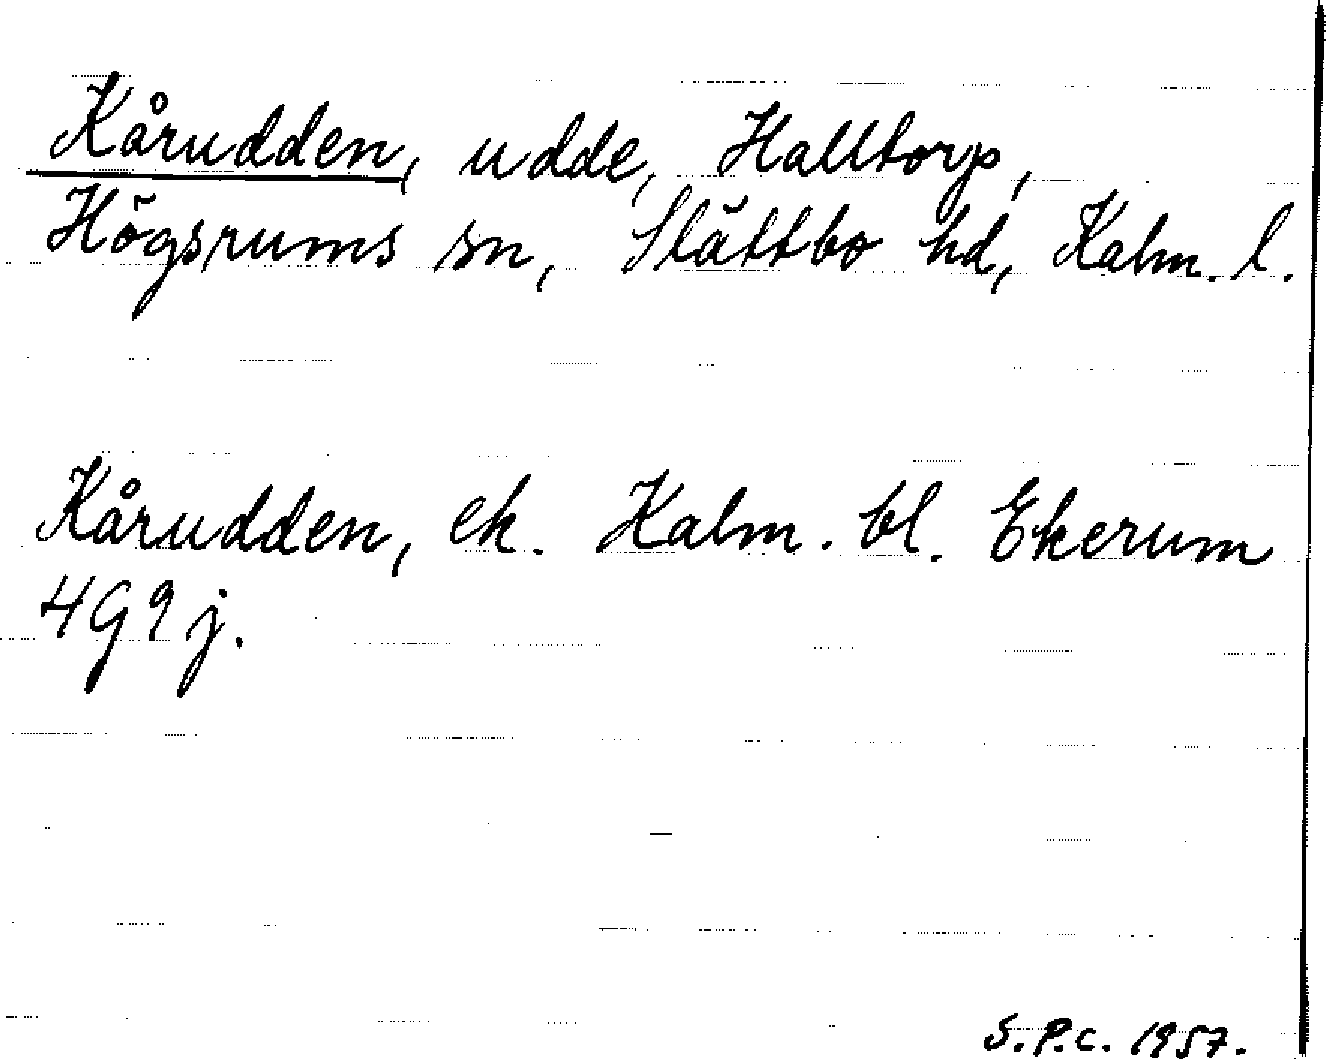 Kårudden, udde, Halltorp,
Högsrums sn, Slättbo hd, Kalm. l.
Kårudden, ek. Kalm. bl. Ekerum
4G9j.
S.P.C. 1957.